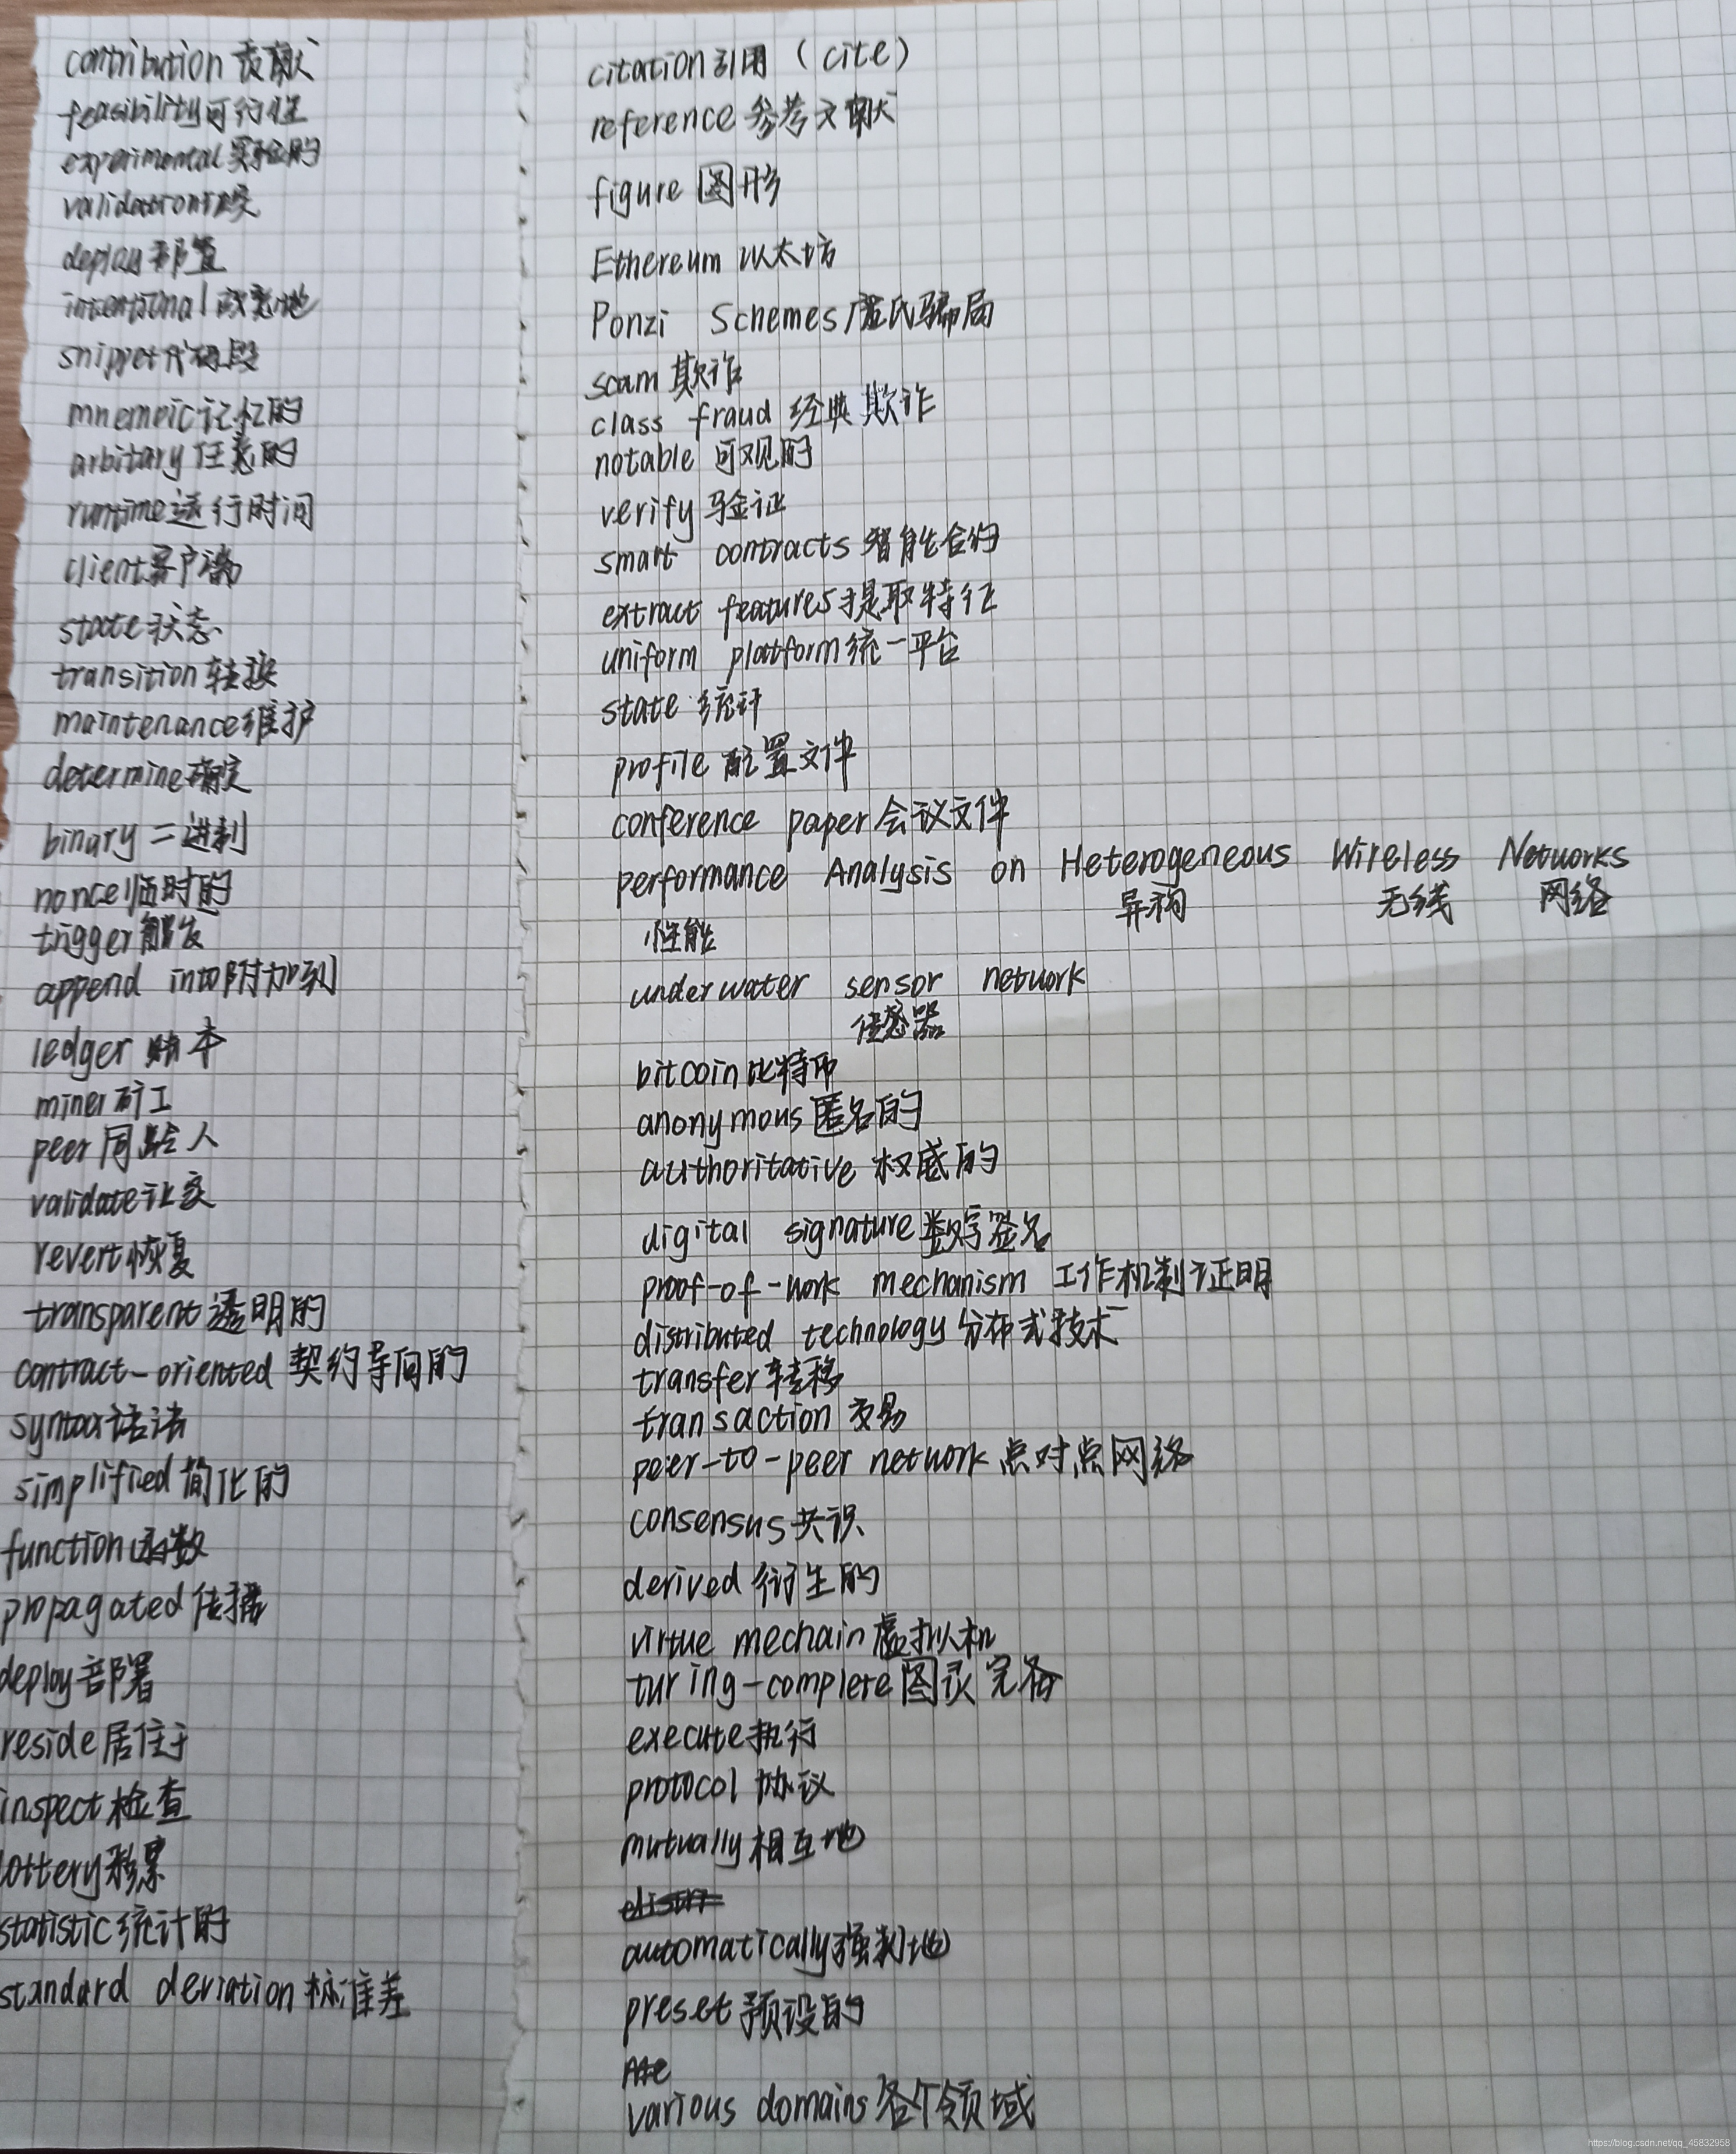 contribution 贡献
feasibility 可行性
experimental 实验的
validation 核实
deploy 部署
intentional 故意地
snippet 代码段
mnemoic 记忆的
arbitary 任意的
runtime 运行时间
client 客户端
state 状态
transition 转换
maintenance 维护
determine 确定
binary 二进制
nonce 临时的
trigger 触发
append into 附加到
ledger 账本
miner 矿工
peer 同龄人
validate 证实
revert 恢复
transparent 透明的
contract-oriented 契约导向的
syntax 语法
simplified 简化的
function 函数
propagated 传播
deploy 部署
reside 居住于
inspect 检查
lottery 彩票
statistic 统计的
standard deriation 标准差
citation 引用 (cite)
reference 参考文献
figure 图形
Ethereum 以太坊
Ponzi Schemes 庞氏骗局
scam 欺诈
class fraud 经典欺诈
notable 可观的
verify 验证
smart contracts 智能合约
extract features 提取特征
uniform platform 统一平台
state 统计
profile 配置文件
conference paper 会议文件
performance Analysis on Heterogeneous Wireless Networks
性能 异构 无线 网络
underwater sensor network
传感器
bitcoin 比特币
anonymous 匿名的
authoritative 权威的
digital signature 数字签名
proof-of-work mechanism 工作机制证明
distributed technology 分布式技术
transfer 转移
transaction 交易
peer-to-peer network 点对点网络
consensus 共识
derived 衍生的
virtue mechain 虚拟机
turing-complete 图灵完备
execute 执行
protocol 协议
mutually 相互地
automatically 强制地
preset 预设的
various domains 各个领域
https://blog.csdn.net/qq_45832958